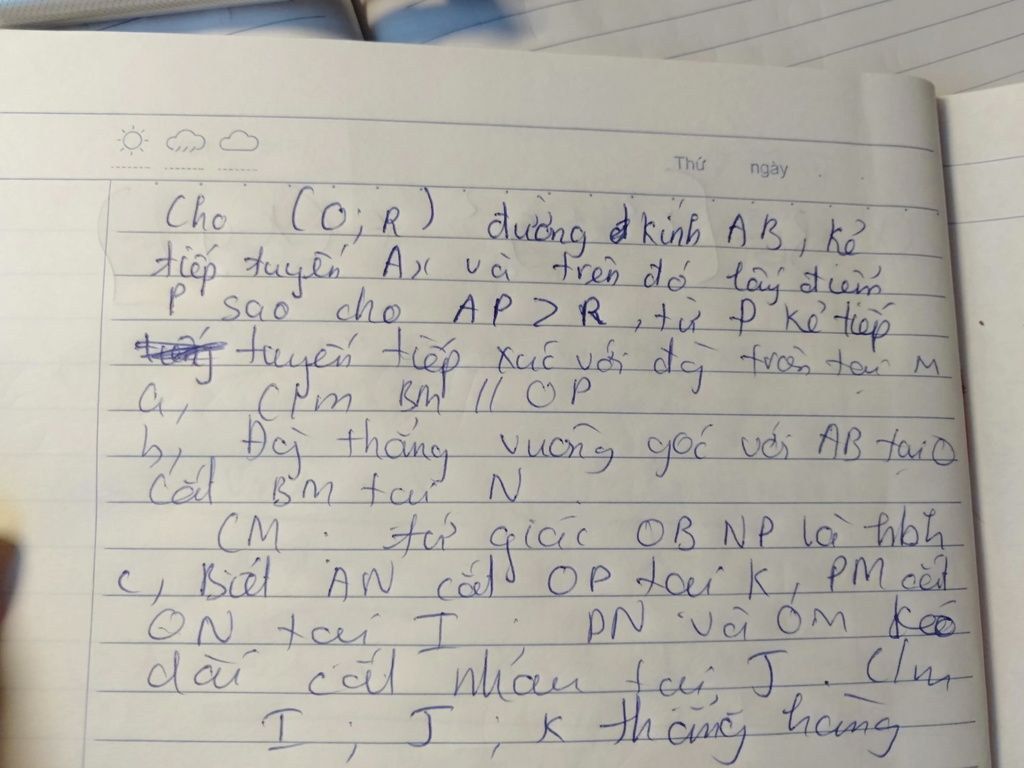 Thứ ngày
Cho (O; R) đường kính AB, kẻ
tiếp tuyến Ax và trên đó lấy điểm
P sao cho AP > R, từ P kẻ tiếp
tuyến tiếp xúc với đg tròn tại M
a, C/m BM // OP
b, Đg thẳng vuông góc với AB tại O
cắt BM tại N
CM: tứ giác OBNP là hbh
c, Biết AN cắt OP tại K, PM cắt
ON tại I; PN và OM kéo
dài cắt nhau tại J. C/m
I; J; K thẳng hàng